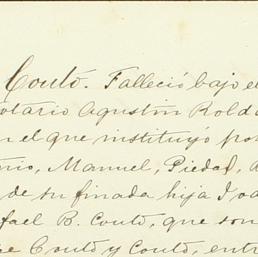 Coutó. Falleció bajo el
otario Agustin Rold
n el que instituyó por
nio, Manuel, Piedad, R
de su finada hija Joa
fael B. Couto, que son
e Couto y Couto, entr